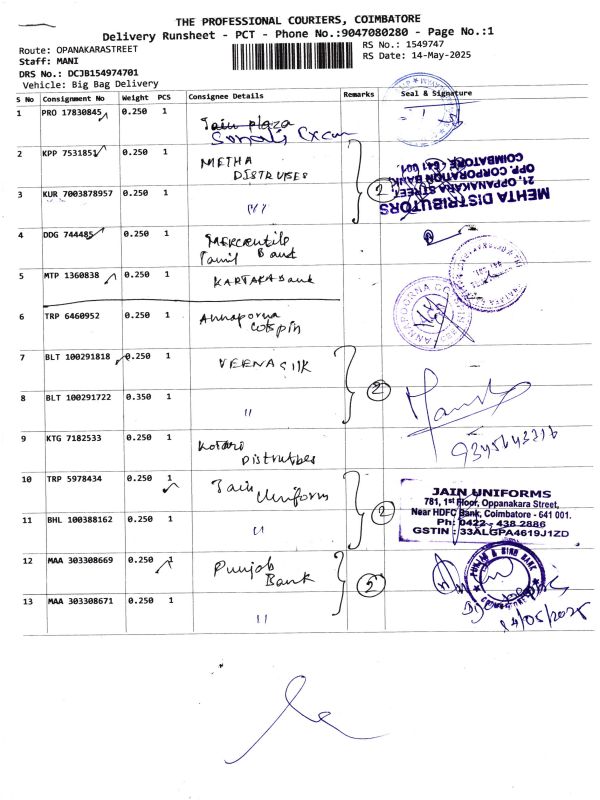 THE PROFESSIONAL COURIERS, COIMBATORE
Delivery Runsheet - PCT - Phone No.:9047080280 - Page No.:1
Route: OPANAKARASTREET
RS No.: 1549747
Staff: MANI
RS Date: 14-May-2025
DRS No.: DCJB154974701
Vehicle: Big Bag Delivery
S No Consignment No Weight PCS Consignee Details Remarks Seal & Signature
1 PRO 17830845 0.250 1 Jain plaza
2 KPP 7531851 0.250 1 METHA
3 KUR 7003878957 0.250 1 "
MEHTA DISTRIBUTORS
21, OPPANAKARA STREET,
OPP. CORPORATION BANK,
COIMBATORE - 641 001.
4 DDG 744485 0.250 1 Mercantile
Tamil Bank
5 MTP 1360838 0.250 1 KARTAKA Bank
6 TRP 6460952 0.250 1 Annaporna
Cotspin
7 BLT 100291818 0.250 1 VEENA SILK
2
8 BLT 100291722 0.350 1 "
9 KTG 7182533 0.250 1 Kotari
10 TRP 5978434 0.250 1 Jain
Uniform
2
11 BHL 100388162 0.250 1 "
JAIN UNIFORMS
781, 1st Floor, Oppanakara Street,
Near HDFC Bank, Coimbatore - 641 001.
Ph: 0422 - 438 2886
GSTIN : 33ALGPA4619J1ZD
12 MAA 303308669 0.250 1 Punjab
Bank
2
13 MAA 303308671 0.250 1 "
PUNJAB & SIND BANK
14/05/2025